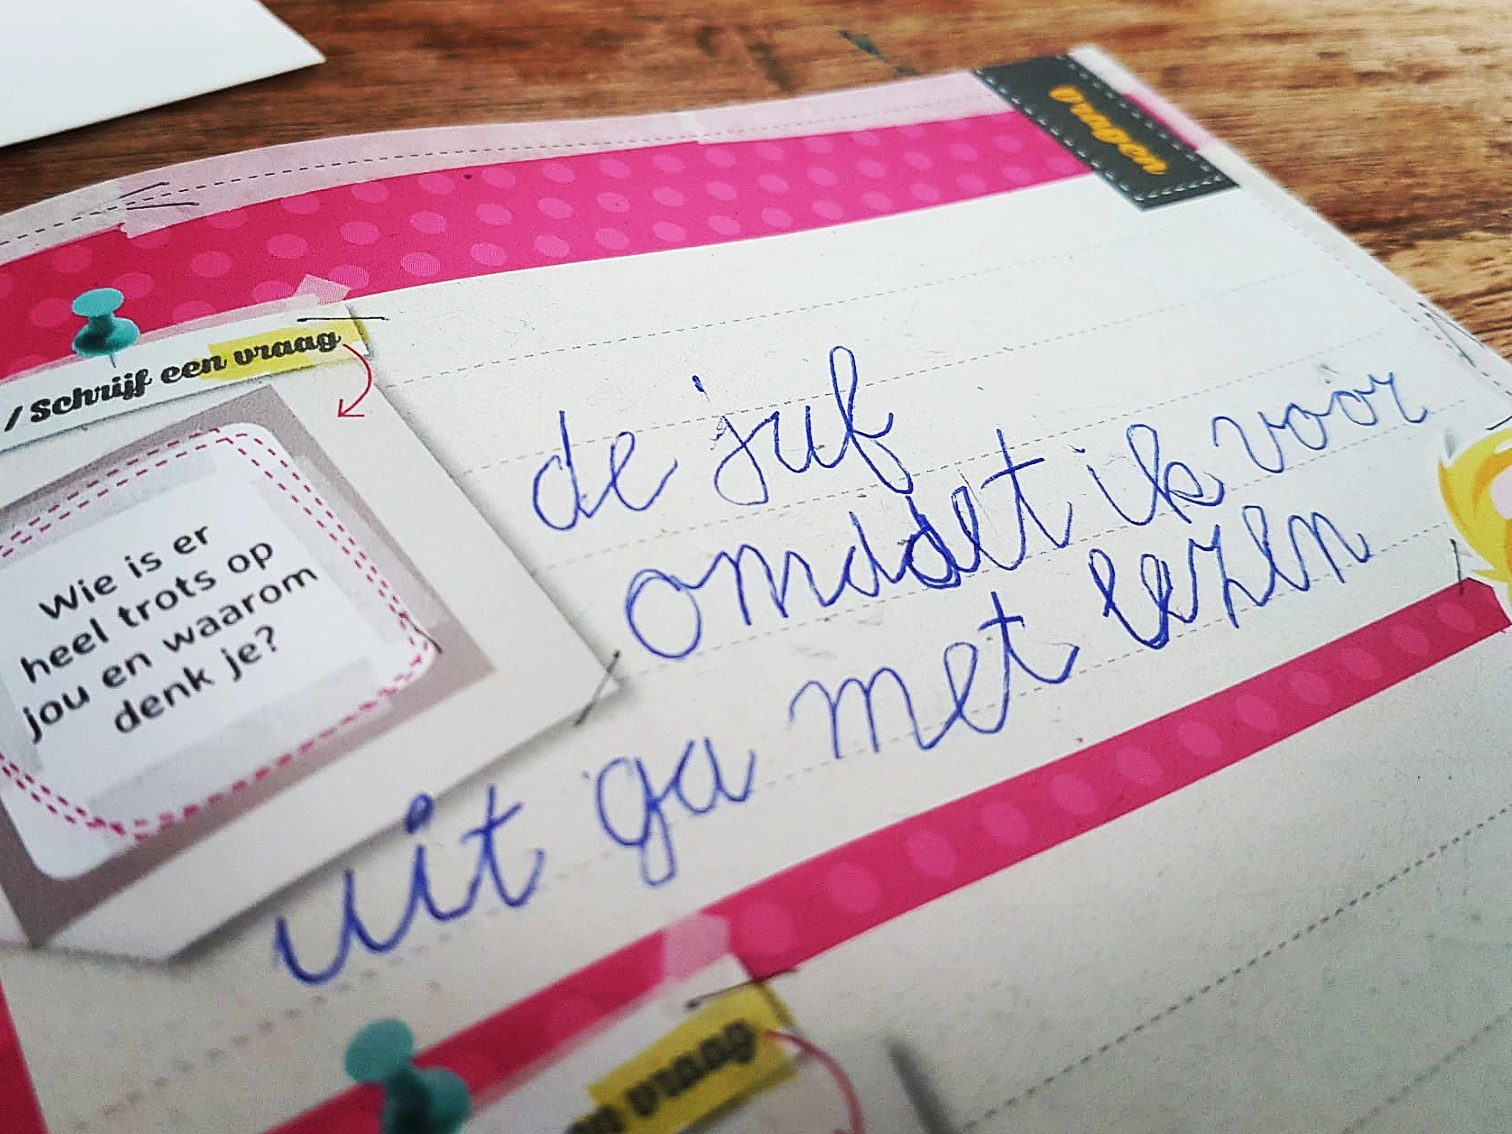 Vragen
/ Schrijf een vraag
Wie is er
heel trots op
jou en waarom
denk je?
de juf
omdat ik voor
uit ga met lezen
vraag